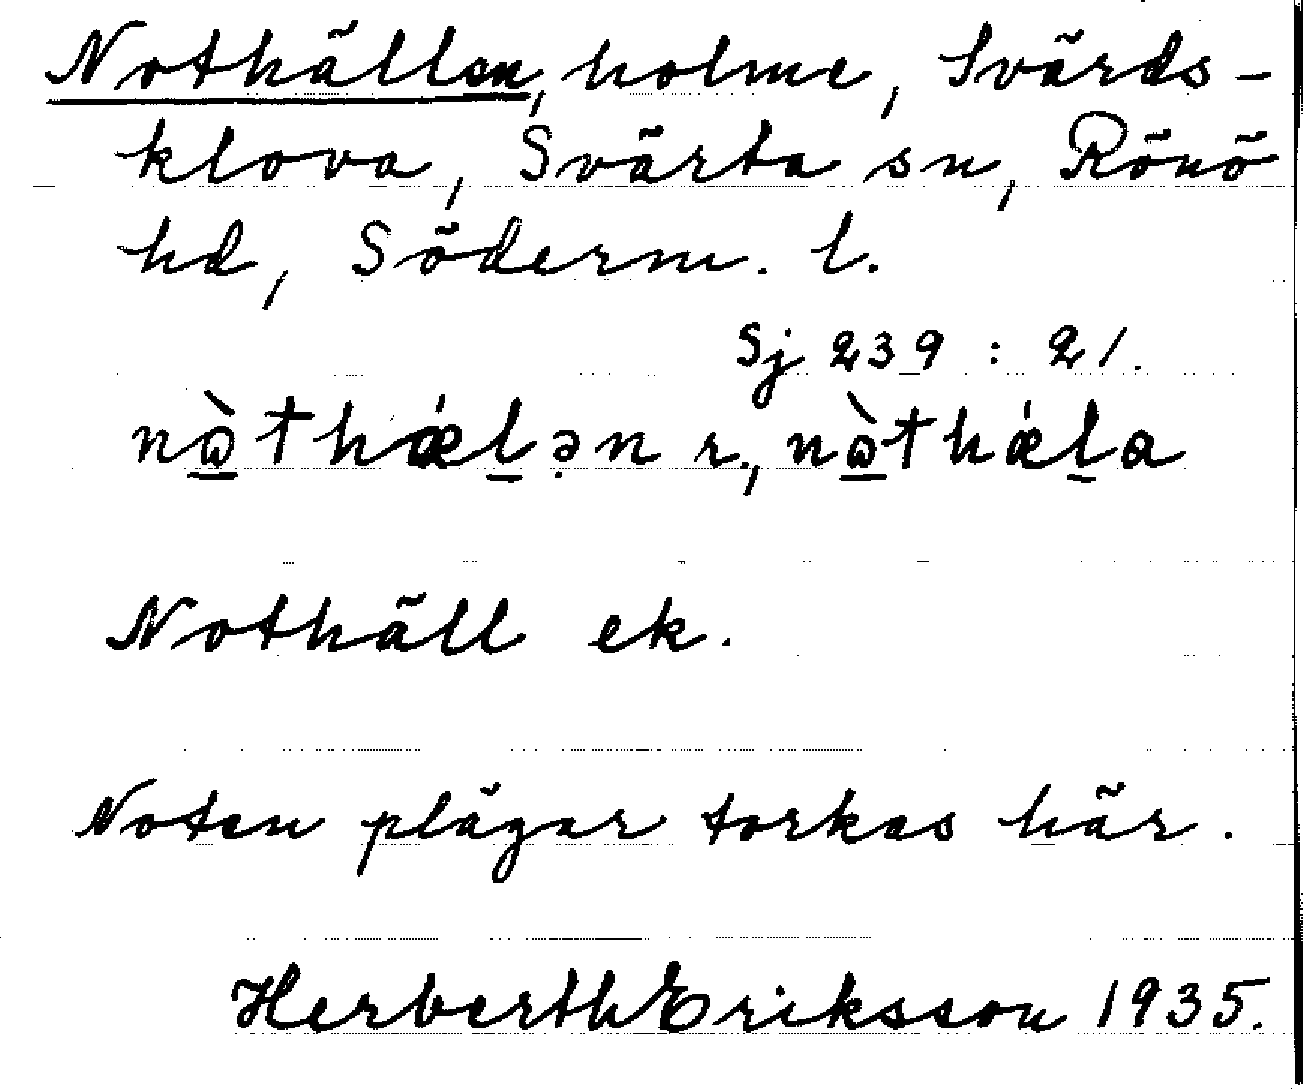 Nothällen, holme, Svärds-
klova, Svärta sn, Rönö
hd, Söderm. l.
Sj 239 : 21.
nɷ̠̀thǽl̠ə̣n r., nɷ̠̀thǽl̠a
Nothäll ek.
Noten plägar torkas här.
Herberth Eriksson 1935.